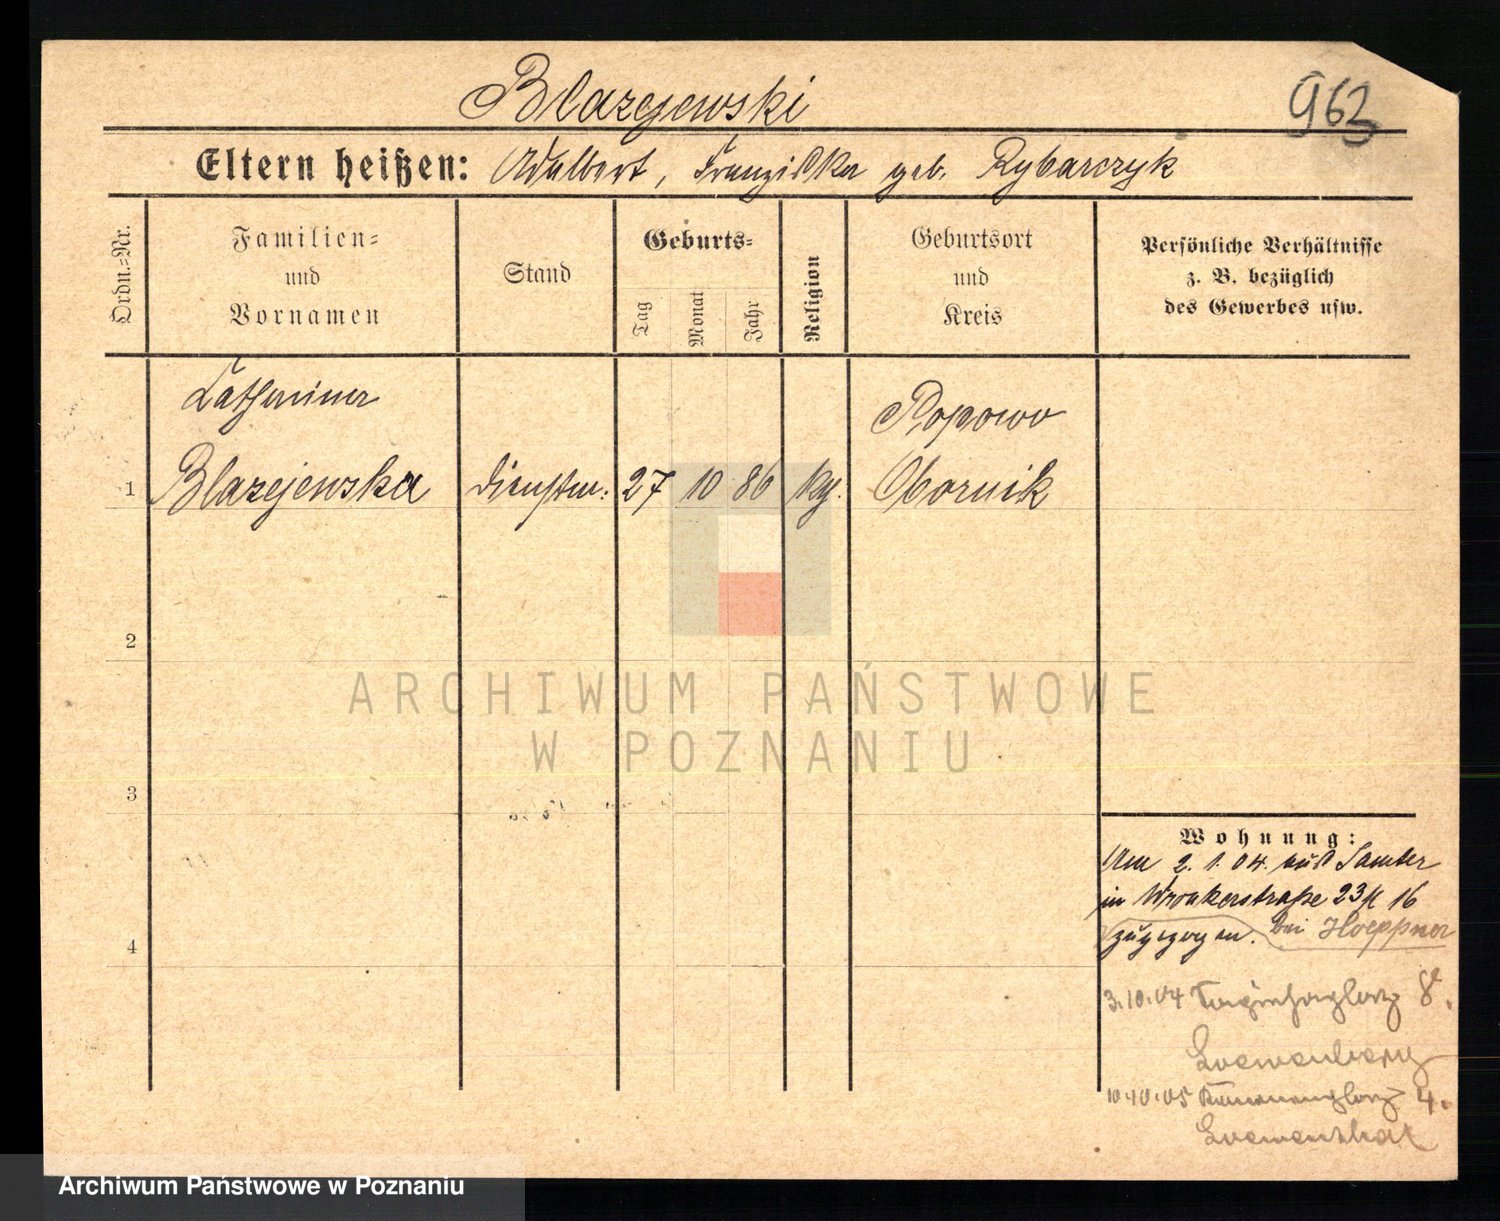 Blazejewski
962
Eltern heißen: Adalbert, Franziska geb. Rybarczyk
Ordn.-Nr.
Familien-
und
Vornamen
Stand
Geburts-
Tag
Monat
Jahr
Religion
Geburtsort
und
Kreis
Persönliche Verhältnisse
z. B. bezüglich
des Gewerbes usw.
Catharina
Popowo
1 Blazejewska Dienstm: 27 10 86 kg. Obornik
2
ARCHIWUM PAŃSTWOWE
W POZNANIU
3
Wohnung:
Am 2. 1. 04. aus Samter
in Wronkerstraße 23/ 16
4
zugezogen. bei Hoeppner
3.10.04 8.
Loewenberg
10.10.05 4.
Loewenthal
Archiwum Państwowe w Poznaniu